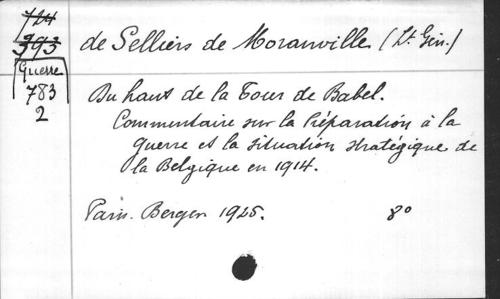 724
393
Guerre
783
2
de Selliers de Moranville (Lt. Gén.)
Du haut de la Tour de Babel.
Commentaire sur la Préparation à la
guerre et la situation stratégique de
la Belgique en 1914.
Paris. Berger 1925. 8°